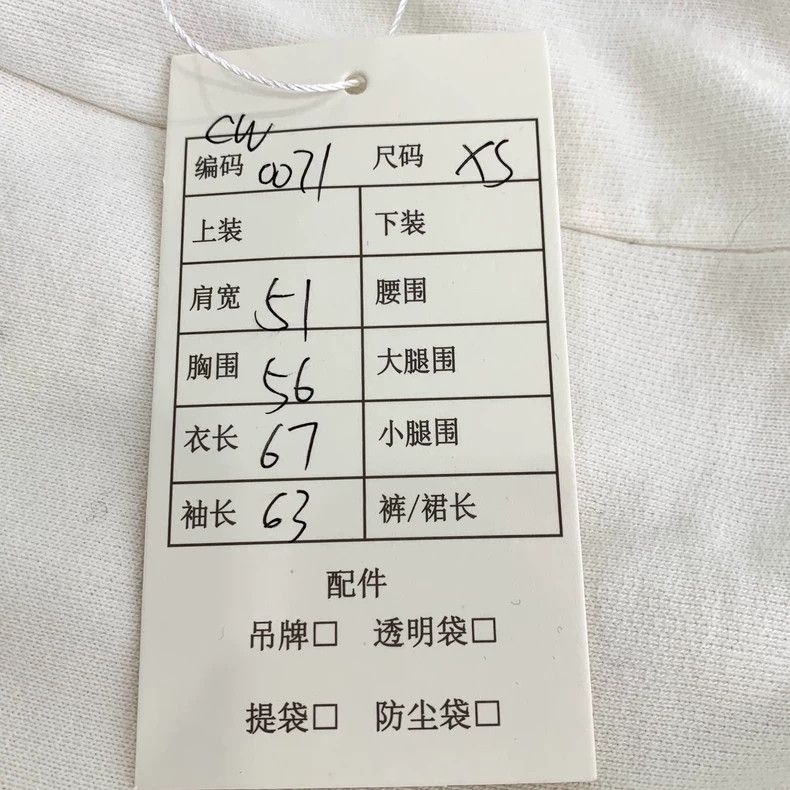 CW
编码 0071 尺码 XS
上装 下装
肩宽 51 腰围
胸围 56 大腿围
衣长 67 小腿围
袖长 63 裤/裙长
配件
吊牌□ 透明袋□
提袋□ 防尘袋□